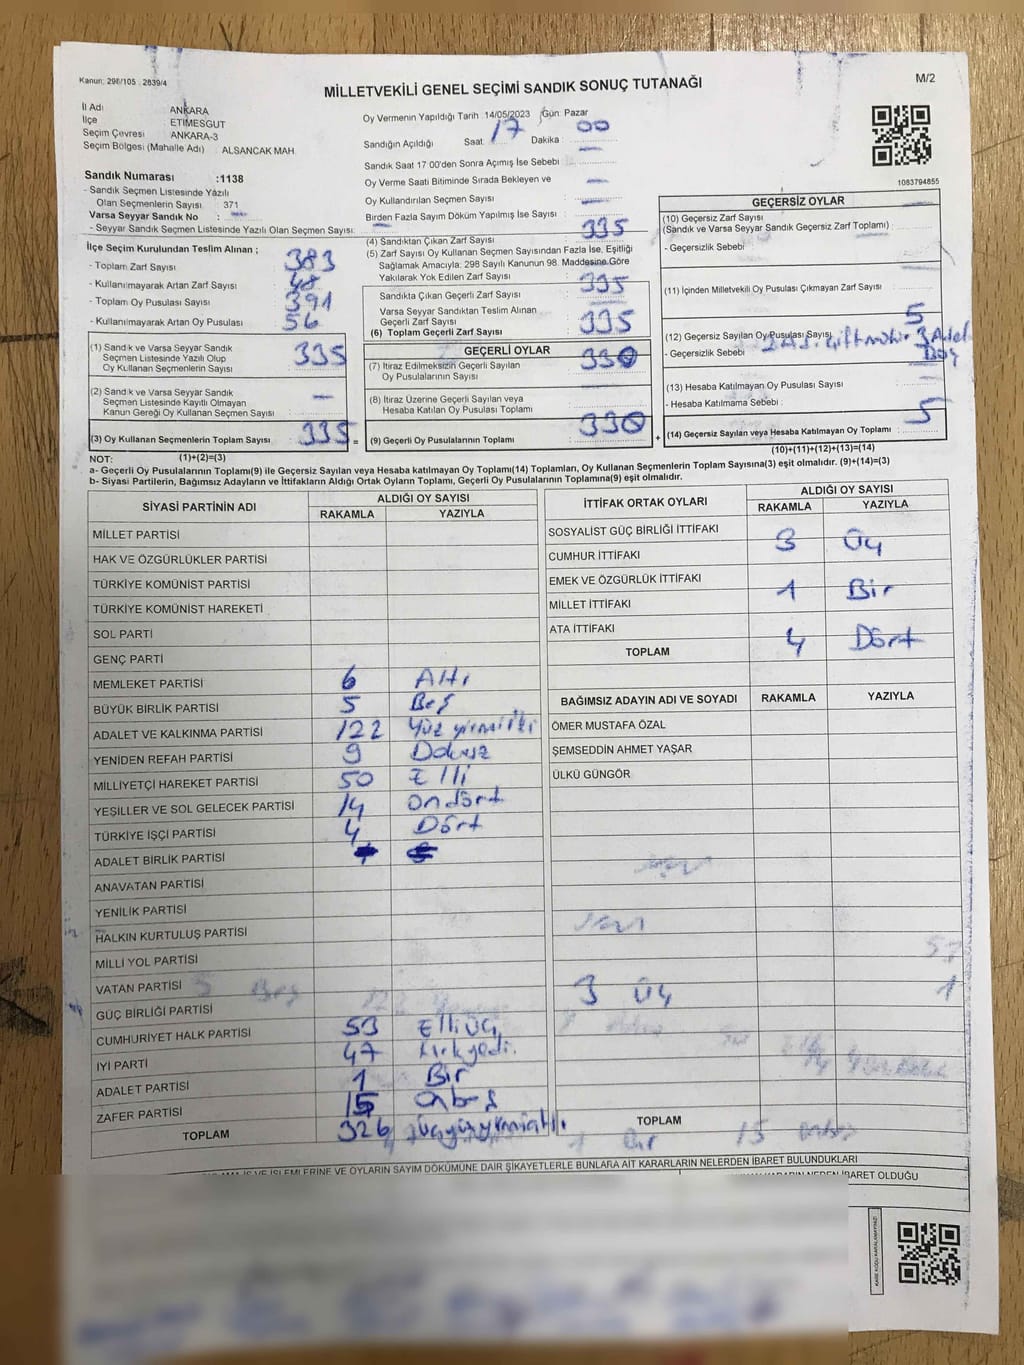 Kanun: 298/105 : 2839/4
MİLLETVEKİLİ GENEL SEÇİMİ SANDIK SONUÇ TUTANAĞI
M/2
İl Adı ANKARA
İlçe ETİMESGUT
Seçim Çevresi ANKARA-3
Seçim Bölgesi (Mahalle Adı) ALSANCAK MAH.
Oy Vermenin Yapıldığı Tarih 14/05/2023 Gün: Pazar
Sandığın Açıldığı Saat 17 Dakika : 00
Sandık Saat 17:00'den Sonra Açımış İse Sebebi : —
Oy Verme Saati Bitiminde Sırada Bekleyen ve
Oy Kullandırılan Seçmen Sayısı : —
Birden Fazla Sayım Döküm Yapılmış İse Sayısı : —
Sandık Numarası :1138
- Sandık Seçmen Listesinde Yazılı
Olan Seçmenlerin Sayısı : 371
Varsa Seyyar Sandık No : —
- Seyyar Sandık Seçmen Listesinde Yazılı Olan Seçmen Sayısı: —
1083794855
İlçe Seçim Kurulundan Teslim Alınan ;
- Toplam Zarf Sayısı : 383
- Kullanılmayarak Artan Zarf Sayısı : 48
- Toplam Oy Pusulası Sayısı : 391
- Kullanılmayarak Artan Oy Pusulası : 56
(1) Sandık ve Varsa Seyyar Sandık
Seçmen Listesinde Yazılı Olup
Oy Kullanan Seçmenlerin Sayısı : 335
(2) Sandık ve Varsa Seyyar Sandık
Seçmen Listesinde Kayıtlı Olmayan
Kanun Gereği Oy Kullanan Seçmen Sayısı : —
(3) Oy Kullanan Seçmenlerin Toplam Sayısı : 335 =
(4) Sandıktan Çıkan Zarf Sayısı : 335
(5) Zarf Sayısı Oy Kullanan Seçmen Sayısından Fazla İse, Eşitliği
Sağlamak Amacıyla; 298 Sayılı Kanunun 98. Maddesine Göre
Yakılarak Yok Edilen Zarf Sayısı : —
Sandıkta Çıkan Geçerli Zarf Sayısı : 335
Varsa Seyyar Sandıktan Teslim Alınan
Geçerli Zarf Sayısı :
(6) Toplam Geçerli Zarf Sayısı : 335
GEÇERLİ OYLAR
(7) İtiraz Edilmeksizin Geçerli Sayılan
Oy Pusulalarının Sayısı : 330
(8) İtiraz Üzerine Geçerli Sayılan veya
Hesaba Katılan Oy Pusulası Toplamı :
(9) Geçerli Oy Pusulalarının Toplamı : 330 +
GEÇERSİZ OYLAR
(10) Geçersiz Zarf Sayısı
(Sandık ve Varsa Seyyar Sandık Geçersiz Zarf Toplamı) :
- Geçersizlik Sebebi :
(11) İçinden Milletvekili Oy Pusulası Çıkmayan Zarf Sayısı :
(12) Geçersiz Sayılan Oy Pusulası Sayısı : 5
- Geçersizlik Sebebi Çift mühür 3 Adet
Boş
(13) Hesaba Katılmayan Oy Pusulası Sayısı :
- Hesaba Katılmama Sebebi :
(14) Geçersiz Sayılan veya Hesaba Katılmayan Oy Toplamı : 5
NOT: (1)+(2)=(3)
(10)+(11)+(12)+(13)=(14)
a- Geçerli Oy Pusulalarının Toplamı(9) ile Geçersiz Sayılan veya Hesaba katılmayan Oy Toplamı(14) Toplamları, Oy Kullanan Seçmenlerin Toplam Sayısına(3) eşit olmalıdır. (9)+(14)=(3)
b- Siyasi Partilerin, Bağımsız Adayların ve İttifakların Aldığı Ortak Oyların Toplamı, Geçerli Oy Pusulalarının Toplamına(9) eşit olmalıdır.
SİYASİ PARTİNİN ADI ALDIĞI OY SAYISI
RAKAMLA YAZIYLA
MİLLET PARTİSİ
HAK VE ÖZGÜRLÜKLER PARTİSİ
TÜRKİYE KOMÜNİST PARTİSİ
TÜRKİYE KOMÜNİST HAREKETİ
SOL PARTİ
GENÇ PARTİ
MEMLEKET PARTİSİ 6 Altı
BÜYÜK BİRLİK PARTİSİ 5 Beş
ADALET VE KALKINMA PARTİSİ 122 Yüz yirmi iki
YENİDEN REFAH PARTİSİ 9 Dokuz
MİLLİYETÇİ HAREKET PARTİSİ 50 Elli
YEŞİLLER VE SOL GELECEK PARTİSİ 14 ondört
TÜRKİYE İŞÇİ PARTİSİ 4 Dört
ADALET BİRLİK PARTİSİ
ANAVATAN PARTİSİ
YENİLİK PARTİSİ
HALKIN KURTULUŞ PARTİSİ
MİLLİ YOL PARTİSİ
VATAN PARTİSİ
GÜÇ BİRLİĞİ PARTİSİ
CUMHURİYET HALK PARTİSİ 53 Elli üç
İYİ PARTİ 47 kırkyedi.
ADALET PARTİSİ 1 Bir
ZAFER PARTİSİ 15 onbeş
TOPLAM 326 üçyüzyirmialtı.
İTTİFAK ORTAK OYLARI ALDIĞI OY SAYISI
RAKAMLA YAZIYLA
SOSYALİST GÜÇ BİRLİĞİ İTTİFAKI
CUMHUR İTTİFAKI 3 Üç
EMEK VE ÖZGÜRLÜK İTTİFAKI
MİLLET İTTİFAKI 1 Bir
ATA İTTİFAKI
TOPLAM 4 Dört
BAĞIMSIZ ADAYIN ADI VE SOYADI RAKAMLA YAZIYLA
ÖMER MUSTAFA ÖZAL
ŞEMSEDDİN AHMET YAŞAR
ÜLKÜ GÜNGÖR
3 Üç
TOPLAM
1 Bir 15
İŞLEMLERİNE VE OYLARIN SAYIM DÖKÜMÜNE DAİR ŞİKAYETLERLE BUNLARA AİT KARARLARIN NELERDEN İBARET BULUNDUKLARI
KARARIN NEDEN İBARET OLDUĞU
KARE KODU KARALAMAYINIZ!